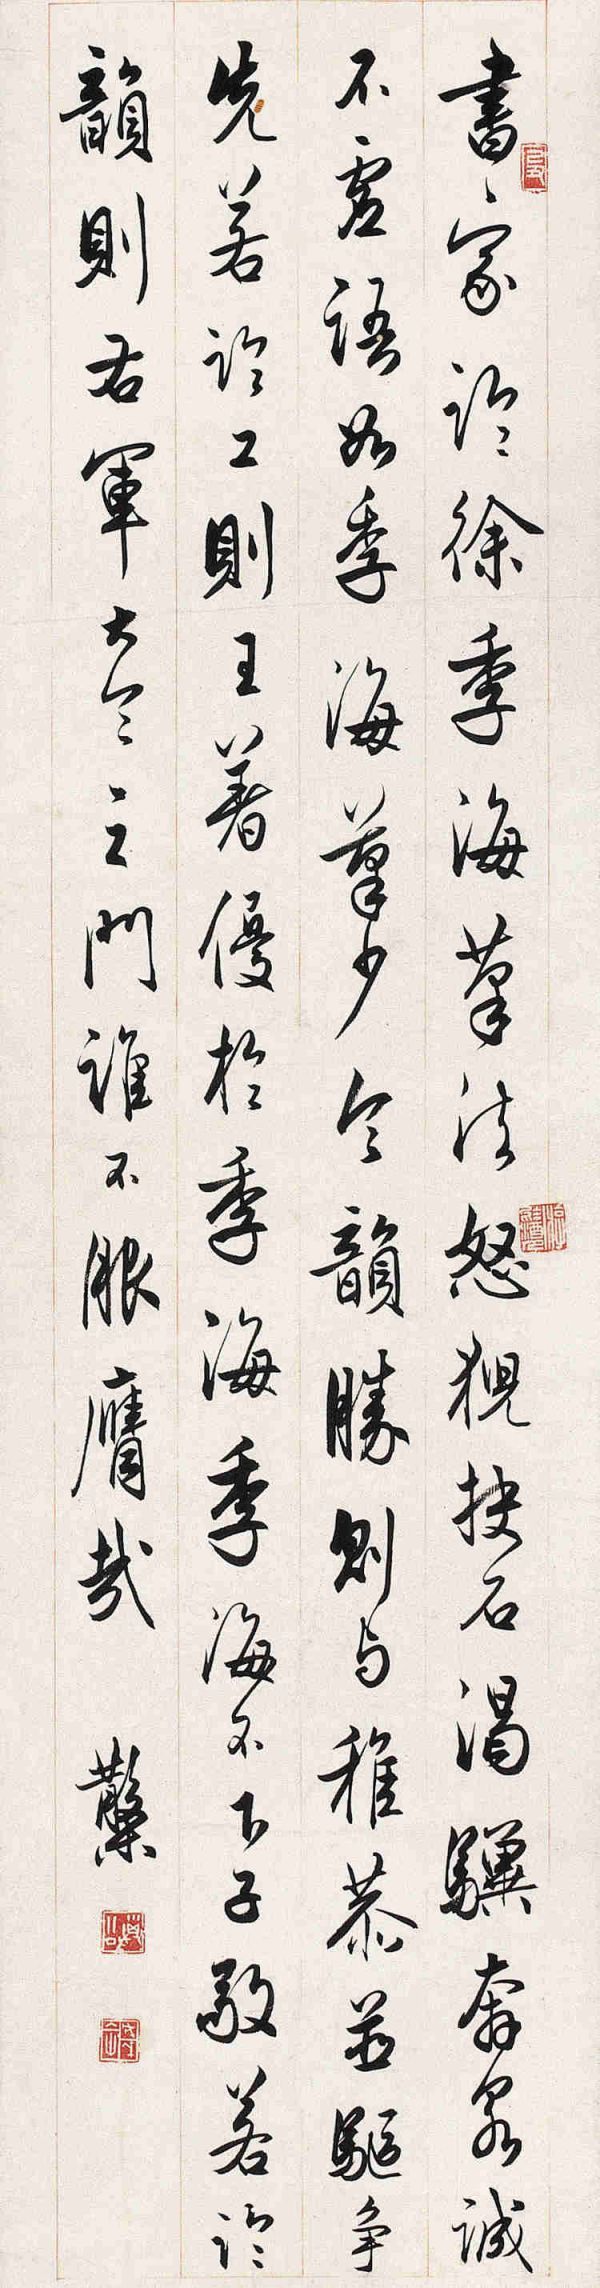 書家論徐季海筆法怒猊抉石渴驥奔泉誠
不虛語如季海筆少令韻勝則与稚恭並驅爭
先若論工則王著優於季海季海不下子敬若論
韻則右軍大令之門誰不服膺哉